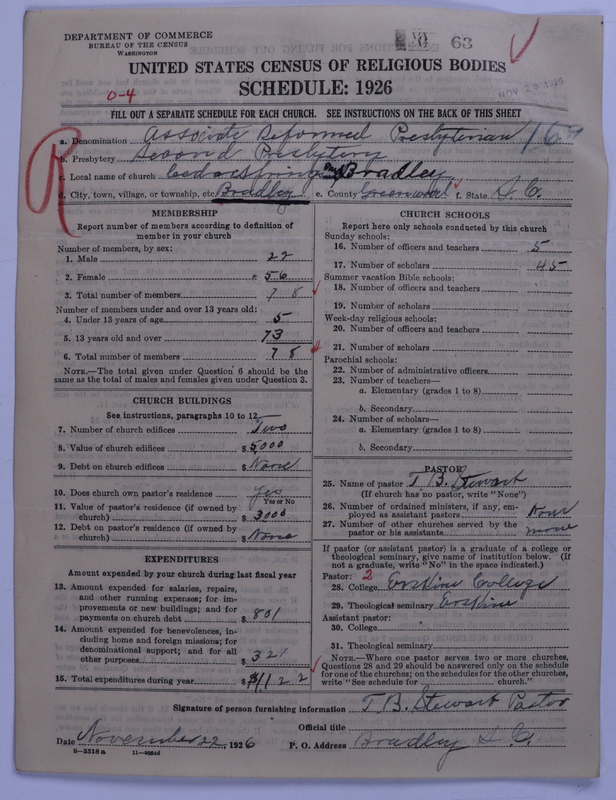 DEPARTMENT OF COMMERCE
BUREAU OF THE CENSUS
WASHINGTON
63
UNITED STATES CENSUS OF RELIGIOUS BODIES
NOV 26 1926
SCHEDULE: 1926
0-4
FILL OUT A SEPARATE SCHEDULE FOR EACH CHURCH. SEE INSTRUCTIONS ON THE BACK OF THIS SHEET
R
a. Denomination Associate Reformed Presbyterian 167
b. Presbytery Second Presbytery
c. Local name of church Cedar Springs Bradley
d. City, town, village, or township, etc. Bradley e. County Greenwood f. State S. C.
MEMBERSHIP
Report number of members according to definition of
member in your church
Number of members, by sex:
1. Male 22
2. Female 56
3. Total number of members 78
Number of members under and over 13 years old:
4. Under 13 years of age 5
5. 13 years old and over 73
6. Total number of members 78
NOTE.—The total given under Question 6 should be the
same as the total of males and females given under Question 3.
CHURCH BUILDINGS
See instructions, paragraphs 10 to 12
7. Number of church edifices Two
8. Value of church edifices $ 5,000
9. Debt on church edifices $ None
10. Does church own pastor's residence Yes
Yes or No
11. Value of pastor's residence (if owned by
church) $ 3000
12. Debt on pastor's residence (if owned by
church) $ None
EXPENDITURES
Amount expended by your church during last fiscal year
13. Amount expended for salaries, repairs,
and other running expenses; for im-
provements or new buildings; and for
payments on church debt $ 801
14. Amount expended for benevolences, in-
cluding home and foreign missions; for
denominational support; and for all
other purposes $ 321
15. Total expenditures during year $ 1122
CHURCH SCHOOLS
Report here only schools conducted by this church
Sunday schools:
16. Number of officers and teachers 5
17. Number of scholars 45
Summer vacation Bible schools:
18. Number of officers and teachers
19. Number of scholars
Week-day religious schools:
20. Number of officers and teachers
21. Number of scholars
Parochial schools:
22. Number of administrative officers
23. Number of teachers—
a. Elementary (grades 1 to 8)
b. Secondary
24. Number of scholars—
a. Elementary (grades 1 to 8)
b. Secondary
PASTOR
25. Name of pastor T. B. Stewart
(If church has no pastor, write "None")
26. Number of ordained ministers, if any, em-
ployed as assistant pastors None
27. Number of other churches served by the
pastor or his assistants none
If pastor (or assistant pastor) is a graduate of a college or
theological seminary, give name of institution below. (If
not a graduate, write "No" in the space indicated.)
Pastor: 2
28. College Erskine College
29. Theological seminary Erskine
Assistant pastor:
30. College
31. Theological seminary
NOTE.—Where one pastor serves two or more churches,
Questions 28 and 29 should be answered only on the schedule
for one of the churches; on the schedules for the other churches,
write "See schedule for church."
Signature of person furnishing information T. B. Stewart Pastor
Official title
Date November 22, 1926 P. O. Address Bradley S. C.
8-5518a